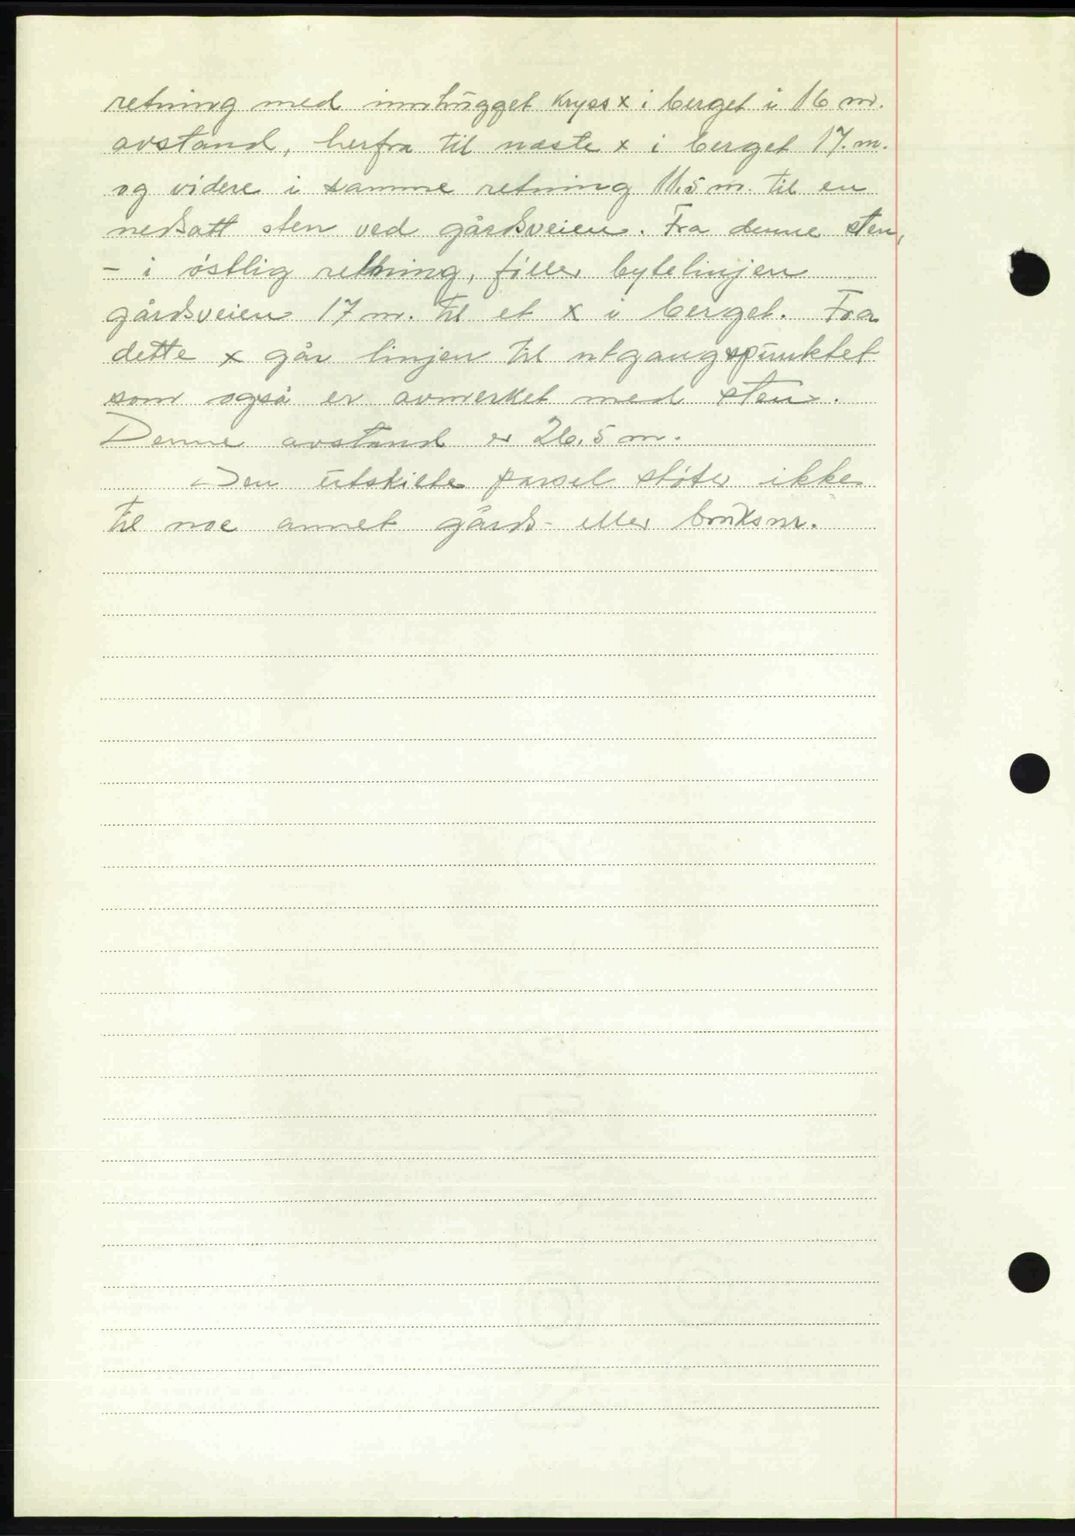 retning med innhugget kryss x i berget i 16 m.
avstand, herfra til næste x i berget 17. m.
og videre i samme retning 11.5 m. til en
nedsatt sten ved gårdsveien. Fra denne sten,
- i østlig retning, føller bytelinjen
gårdsveien 17 m. til et x i berget. Fra
dette x går linjen til utgangspunktet
som også er avmerket med sten.
Denne avstand er 26.5 m.
Den utskilte parsel støter ikke
til noe annet gårds- eller bruksnr.